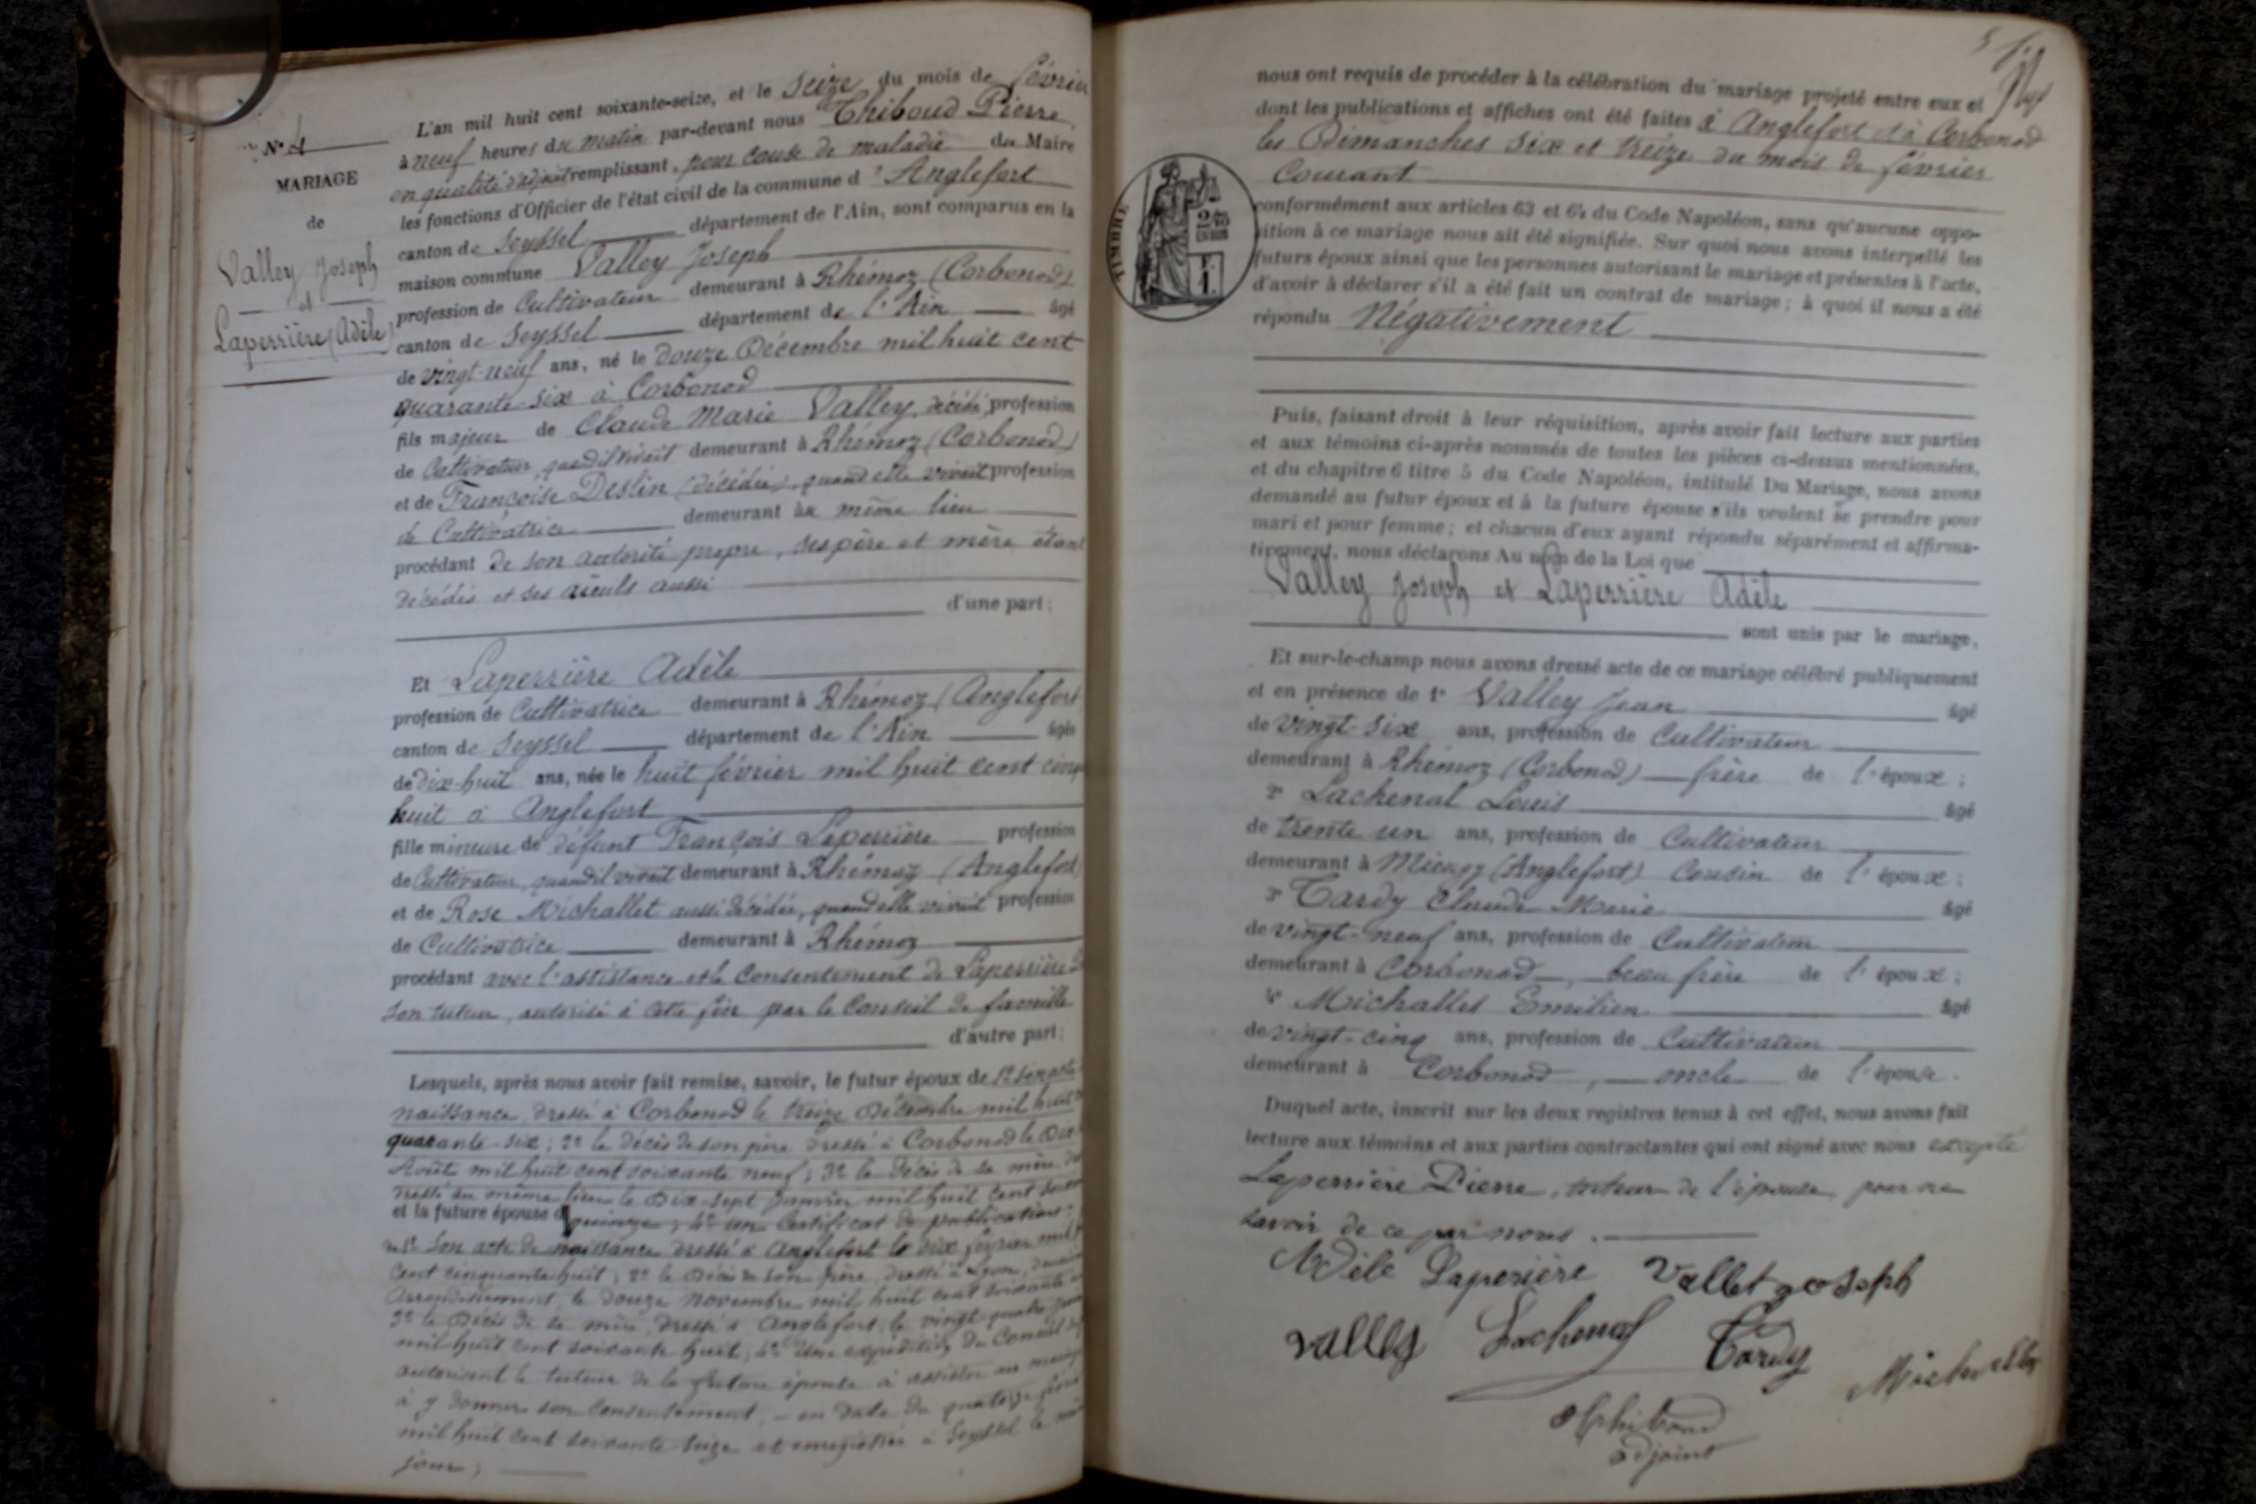 N° 4
MARIAGE
de
Valley Joseph
et
Laperrière Adèle
L'an mil huit cent soixante-seize, et le seize du mois de février
à neuf heures du matin par-devant nous Thiboud Pierre
en qualité d'adjoint remplissant, pour cause de maladie du Maire
les fonctions d'Officier de l'état civil de la commune d'Anglefort
canton de Seyssel département de l'Ain, sont comparus en la
maison commune Valley Joseph
profession de Cultivateur demeurant à Rhémoz (Corbonod)
canton de Seyssel département de l'Ain âgé
de vingt-neuf ans, né le douze Décembre mil huit cent
quarante-six à Corbonod
fils majeur de Claude Marie Valley, décédé profession
de Cultivateur, quand il vivait demeurant à Rhémoz (Corbonod)
et de Françoise Deslin (décédée), quand elle vivait profession
de Cultivatrice demeurant au même lieu
procédant de son autorité propre, ses père et mère étant
décédés et ses aïeuls aussi
d'une part;
Et Laperrière Adèle
profession de Cultivatrice demeurant à Rhémoz (Anglefort
canton de Seyssel département de l'Ain âgée
de dix-huit ans, née le huit février mil huit cent cinq
huit à Anglefort
fille mineure de défunt François Laperrière profession
de Cultivateur, quand il vivait demeurant à Rhémoz (Anglefort)
et de Rose Michallet aussi décédée, quand elle vivait profession
de Cultivatrice demeurant à Rhémoz
procédant avec l'assistance et le Consentement de Laperrière
son tuteur, autorisé à cette fin par le Conseil de famille
d'autre part;
Lesquels, après nous avoir fait remise, savoir, le futur époux de 1° son acte
naissance, dressé à Corbonod le treize Décembre mil huit
quarante-six; 2° le décès de son père dressé à Corbonod le Dix
Août mil huit cent soixante neuf; 3° le Décès de sa mère
dressé au même lieu le Dix-sept Janvier mil huit cent
et la future épouse d quinze; 4° un Certificat de publications
1° Son acte de naissance dressé à Anglefort le dix février mil
Cent cinquante huit; 2° le Décès de son père, dressé à Lyon,
Arrondissement, le douze novembre mil huit cent soixante
3° le Décès de sa mère, dressé à Anglefort, le vingt quatre
mil huit cent soixante huit; 4° Une expédition du Conseil
autorisant le tuteur de la future épouse à assister au mariage
à y donner son Consentement, en date du quatorze
mil huit cent soixante-seize et enregistrée à Seyssel le
jour;
nous ont requis de procéder à la célébration du mariage projeté entre eux et
dont les publications et affiches ont été faites à Anglefort et à Corbonod
les Dimanches six et treize du mois de février
Courant
TIMBRE
conformément aux articles 63 et 64 du Code Napoléon, sans qu'aucune oppo-
sition à ce mariage nous ait été signifiée. Sur quoi nous avons interpellé les
futurs époux ainsi que les personnes autorisant le mariage et présentes à l'acte,
d'avoir à déclarer s'il a été fait un contrat de mariage; à quoi il nous a été
répondu Négativement
Puis, faisant droit à leur réquisition, après avoir fait lecture aux parties
et aux témoins ci-après nommés de toutes les pièces ci-dessus mentionnées,
et du chapitre 6 titre 5 du Code Napoléon, intitulé Du Mariage, nous avons
demandé au futur époux et à la future épouse s'ils veulent se prendre pour
mari et pour femme; et chacun d'eux ayant répondu séparément et affirma-
tivement, nous déclarons Au nom de la Loi que
Valley Joseph et Laperrière Adèle
sont unis par le mariage,
Et sur-le-champ nous avons dressé acte de ce mariage célébré publiquement
et en présence de 1° Valley Jean âgé
de vingt-six ans, profession de Cultivateur
demeurant à Rhémoz (Corbonod) frère de l'époux;
2° Lachenal Louis âgé
de trente un ans, profession de Cultivateur
demeurant à Mieugy (Anglefort) Cousin de l'époux;
3° Tardy Claude Marie âgé
de vingt-neuf ans, profession de Cultivateur
demeurant à Corbonod, beau frère de l'époux;
4° Michallet Emilien âgé
de vingt-cinq ans, profession de Cultivateur
demeurant à Corbonod, oncle de l'épouse.
Duquel acte, inscrit sur les deux registres tenus à cet effet, nous avons fait
lecture aux témoins et aux parties contractantes qui ont signé avec nous excepté
Laperrière Pierre, tuteur de l'épouse, pour ne
savoir de ce par nous.
Adèle Laperière Vallet joseph
valley Lachenal Tardy
Michallet
Thiboud
adjoint